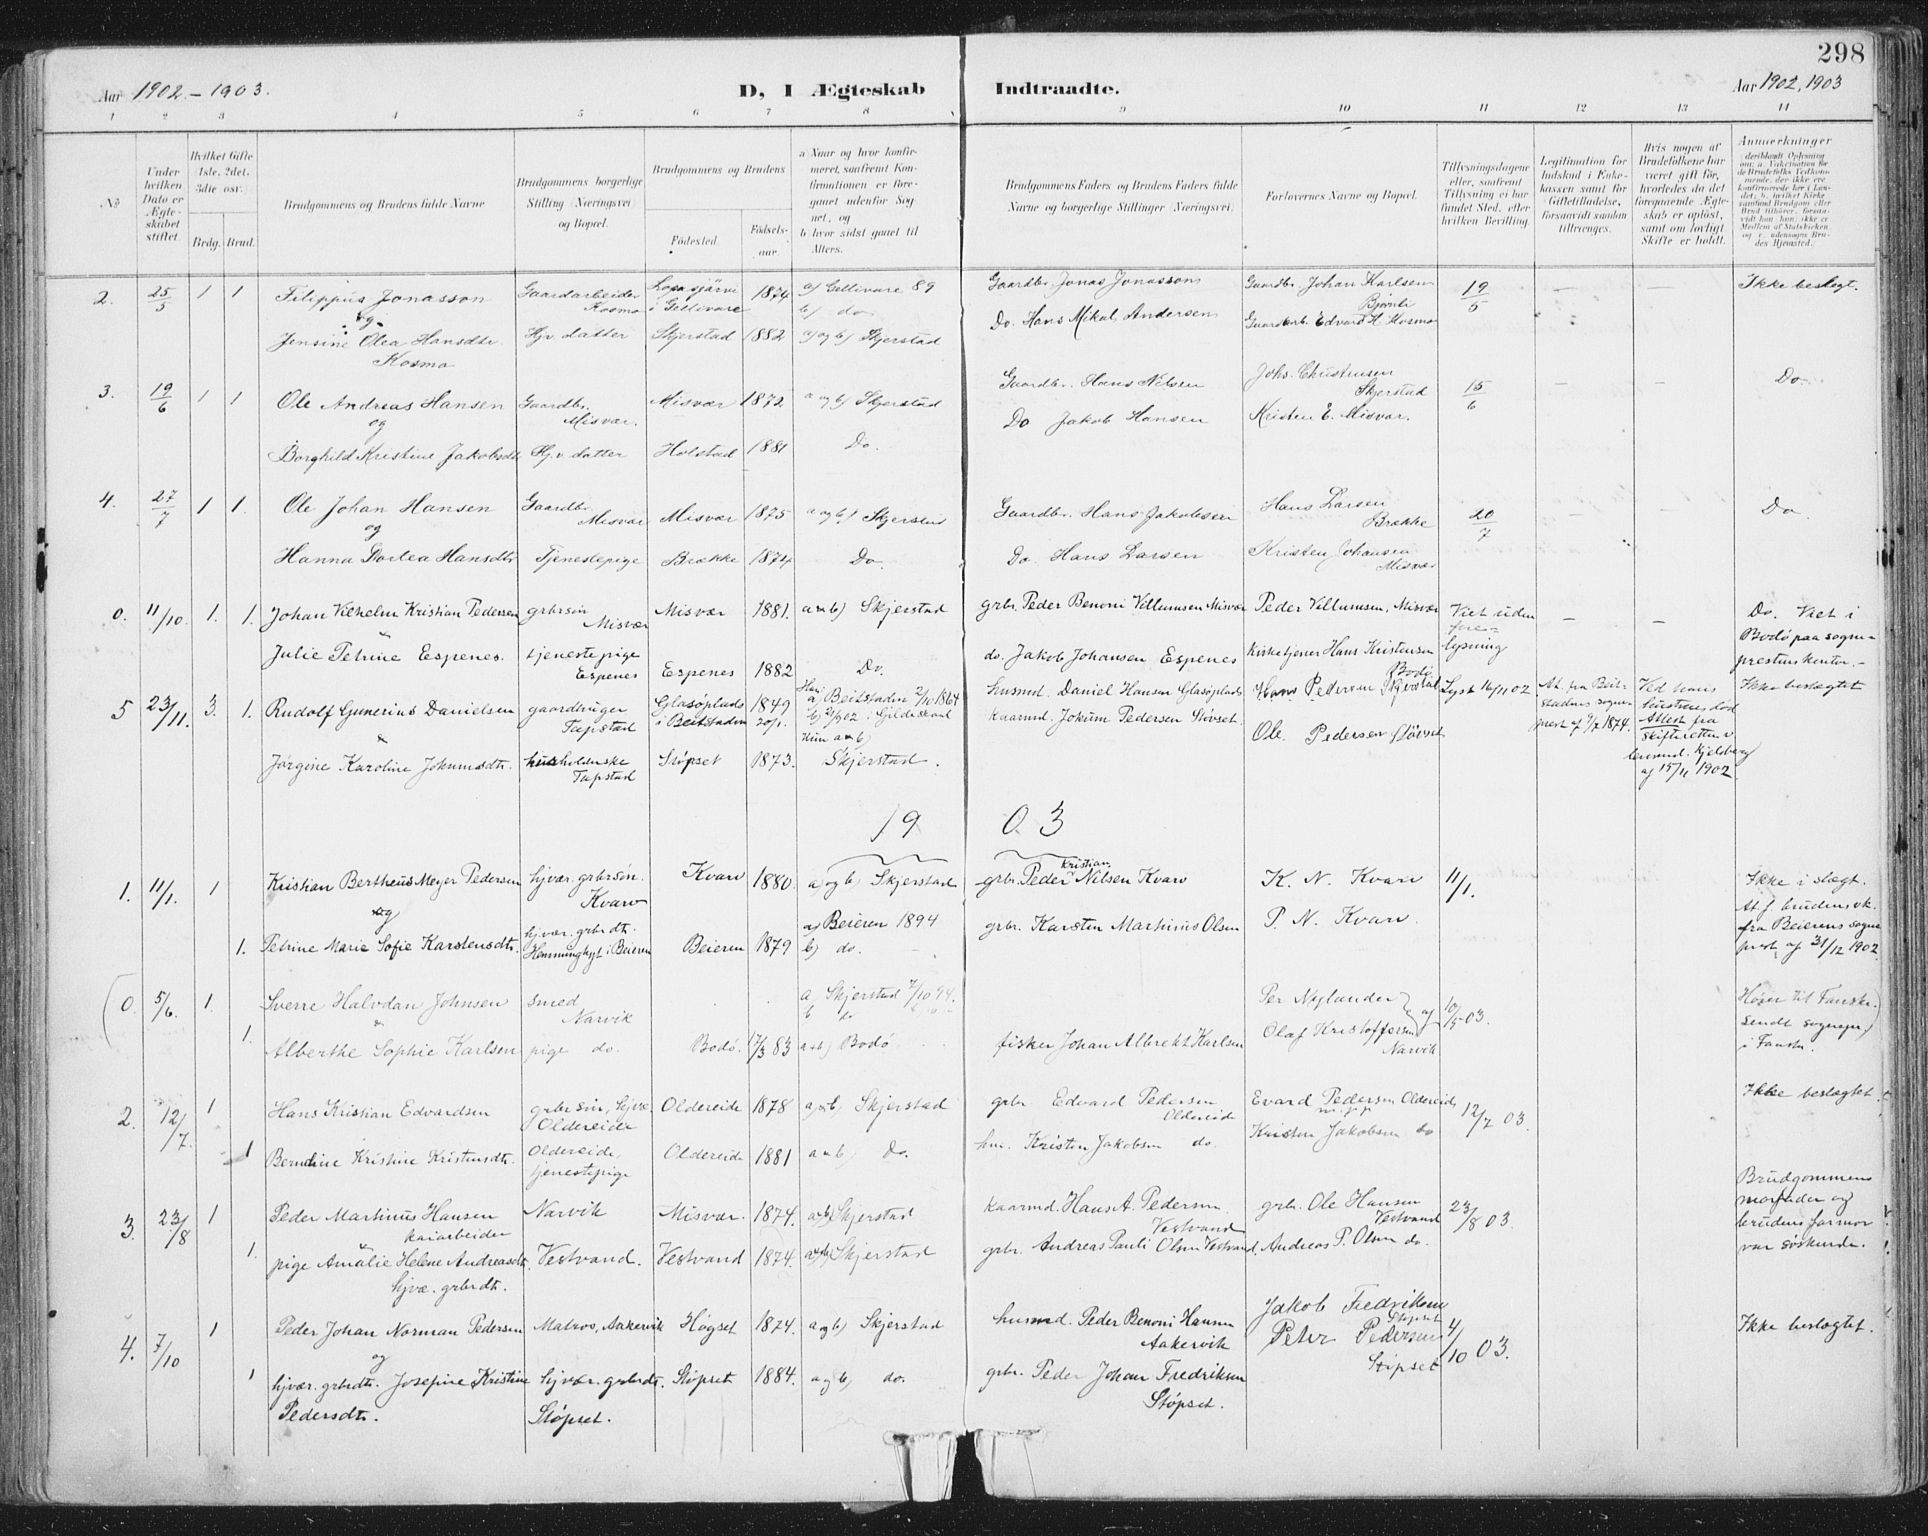 298
Aar 1902.-1903.
D, I Ægteskab Indtraadte.
Aar 1902, 1903
1 2 3 4 5 6 7 8 9 10 11 12 13 14
No
Under hvilken Dato er Ægteskabet stiftet.
Hvilket Gifte 1ste, 2det, 3die osv.
Brdg. Brud.
Brudgommens og Brudens fulde Navne
Brudgommens borgerlige Stilling (Næringsvei) og Bopæl.
Brudgommens og Brudens
Fødested.
Fødselsaar.
a Naar og hvor konfirmeret, saafremt Konfirmationen er foregaaet udenfor Sognet, og
b hvor sidst gaaet til Alters.
Brudgommens Faders og Brudens Faders fulde Navne og borgerlige Stillinger (Næringsvei)
Forlovernes Navne og Bopæl.
Tillysningsdagene eller, saafremt Tillysning ei har fundet Sted, efter hvilken Bevilling.
Legitimation for Indskud i Enkekassen samt for Giftetilladelse, forsaavidt saadan tiltrænges.
Hvis nogen af Brudefolkene har været gift før, hvorledes da det foregaaende Ægteskab er opløst, samt om lovligt Skifte er holdt.
Anmerkninger
2. 25/5 1 1 Filippus Jonasson Gaardarbeider Kosmo Lopasjärvi i Gellivare 1874 a) Gellivare 89 b) do Gaardbr. Jonas Jonasson Gaardbr. Johan Karlsen Bjørnli 19/5 — — Ikke beslegt.
og
Jensine Olea Hansdtr. Kosmo Hjv. datter Skjerstad 1882 a) og b) Skjerstad Do. Hans Mikal Andersen Gaardarb. Edvard H. Kosmo
3. 19/6 1 1 Ole Andreas Hansen Gaardbr. Misvær. Misvær 1872 a og b) Skjerstad Gaardbr. Hans Nilsen Johs. Christensen Skjerstad 15/6 — — Do.
og
Borghild Kristine Jakobsdtr Hjv. datter Holstad 1881 Do. Do Jakob Hansen Kristen E. Misvær.
4. 27/7 1 1. Ole Johan Hansen Gaardbr. Misvær Misvær 1875 a og b) Skjerstad Gaardbr. Hans Jakobsen Hans Larsen Brække 20/7 — — Do
og
Hanna Dortea Hansdtr Tjenestepige Brække 1874 Do. Do. Hans Larsen Kristen Johansen Misvær
0. 11/10. 1. 1. Johan Vilhelm Kristian Pedersen grbrsøn Misvær Misvær 1881. a & b) Skjerstad grbr. Peder Benoni Villumsen Misvær Peder Villumsen, Misvær Viet uden lysning — — Do. Viet i Bodø paa sogneprestens kontor.-
Julie Petrine Espenes. tjenestepige Espenes Espenes 1882 Do. do. Jakob Johansen Espenes kirketjener Hans Kristensen Bodø
5 23/11. 3. 1. Rudolf Gunerius Danielsen gaardbruger Tapstad Glasøplads i Beitstaden 1849 20/1. Han a) Beitstaden 2/10 1864 b) 2/9 02 i Gildeskaal husmd. Daniel Hansen Glasøplads Hans Pedersen Skjerstad Lyst 16/11 02 At. fra Beitstadens sogneprest af 9/7 1874. Ved hans hustrues død Attest fra skifteretten v lensmd. Kjelsberg af 15/11 1902 Ikke beslægtet
&
Jørgine Karoline Johumsdtr. husholderske Tapstad Støpset 1873. Hun a & b) Skjerstad. kaarmd. Jokum Pedersen Støvset. Ole Pedersen Støvset
1903
1. 11/1. 1 Kristian Bertheus Meyer Pedersen hjvær. grbrsøn. Kvarv Kvarv 1880. a) og b) Skjerstad grbr. Peder Kristian Nilsen Kvarv K. N. Kvarv 11/1. Ikke i slægt.
og
1. Petrine Marie Sofie Karstensdtr. hjvær. grbrdt. i Beieren Beieren 1879 a) Beieren 1894 b) do. grbr. Karsten Martinus Olsen P. N. Kvarv. At. f. brudens vk. fra Beierens sogneprest af 31/12 1902.
(0. 5/6. 1. Sverre Halvdan Johnsen smed Narvik a) Skjerstad 7/10 94. b do Per Nylander af 10/5 03. Hører til Fauske. Sendt sognepr. i Fauske.)
&
1. Alberthe Sophie Karlsen pige do. Bodø. 17/3 83 a & b) Bodø fisker Johan Albrekt Karlsen Olaf Kristoffersen Narvik
2. 12/7. 1 Hans Kristian Edvardsen grbrsøn, hjvæ. Oldereide Oldereide 1878 a & b) Skjerstad grbr. Edvard Pedersen Oldereide Evard Pedersen Oldereide m. p. p. 12/7 03. Ikke beslægtet.
1 Berndine Kristine Kristensdtr. Oldereide, tjenestepige Oldereide 1881 a & b) Do. hm. Kristen Jakobsen do. Kristen Jakobsen do
3. 23/8 1 Peder Martinus Hansen kaiarbeider Narvik Misvær. 1874. a & b) Skjerstad kaarmd. Hans A. Pedersen Vestvand grbr. Ole Hansen Vestvand 23/8 03. Brudgommens morfader og brudens farmor var søskende.
&
1. pige Amalie Helene Andreasdt. hjvæ. grbrdt. Vestvand. Vestvand 1874. a & b) Skjerstad grbr. Andreas Pauli Olsen Vestvand, Andreas P. Olsen do.
4. 7/10 1 Peder Johan Norman Pedersen Matros, Aakervik Høgset 1874. a og b) Skjerstad husmd. Peder Benoni Hansen Aakervik Jakob Fredriksen Støpset 4/10 03. Ikke beslægtet.
og
1 hjvær. grbrdt. Josefine Kristine Pedersdt. hjvær. grbrdt. Støpset. Støpset 1884. a og b) do. grbr. Peder Johan Fredriksen Støpset. Peter Pedersen Støpset